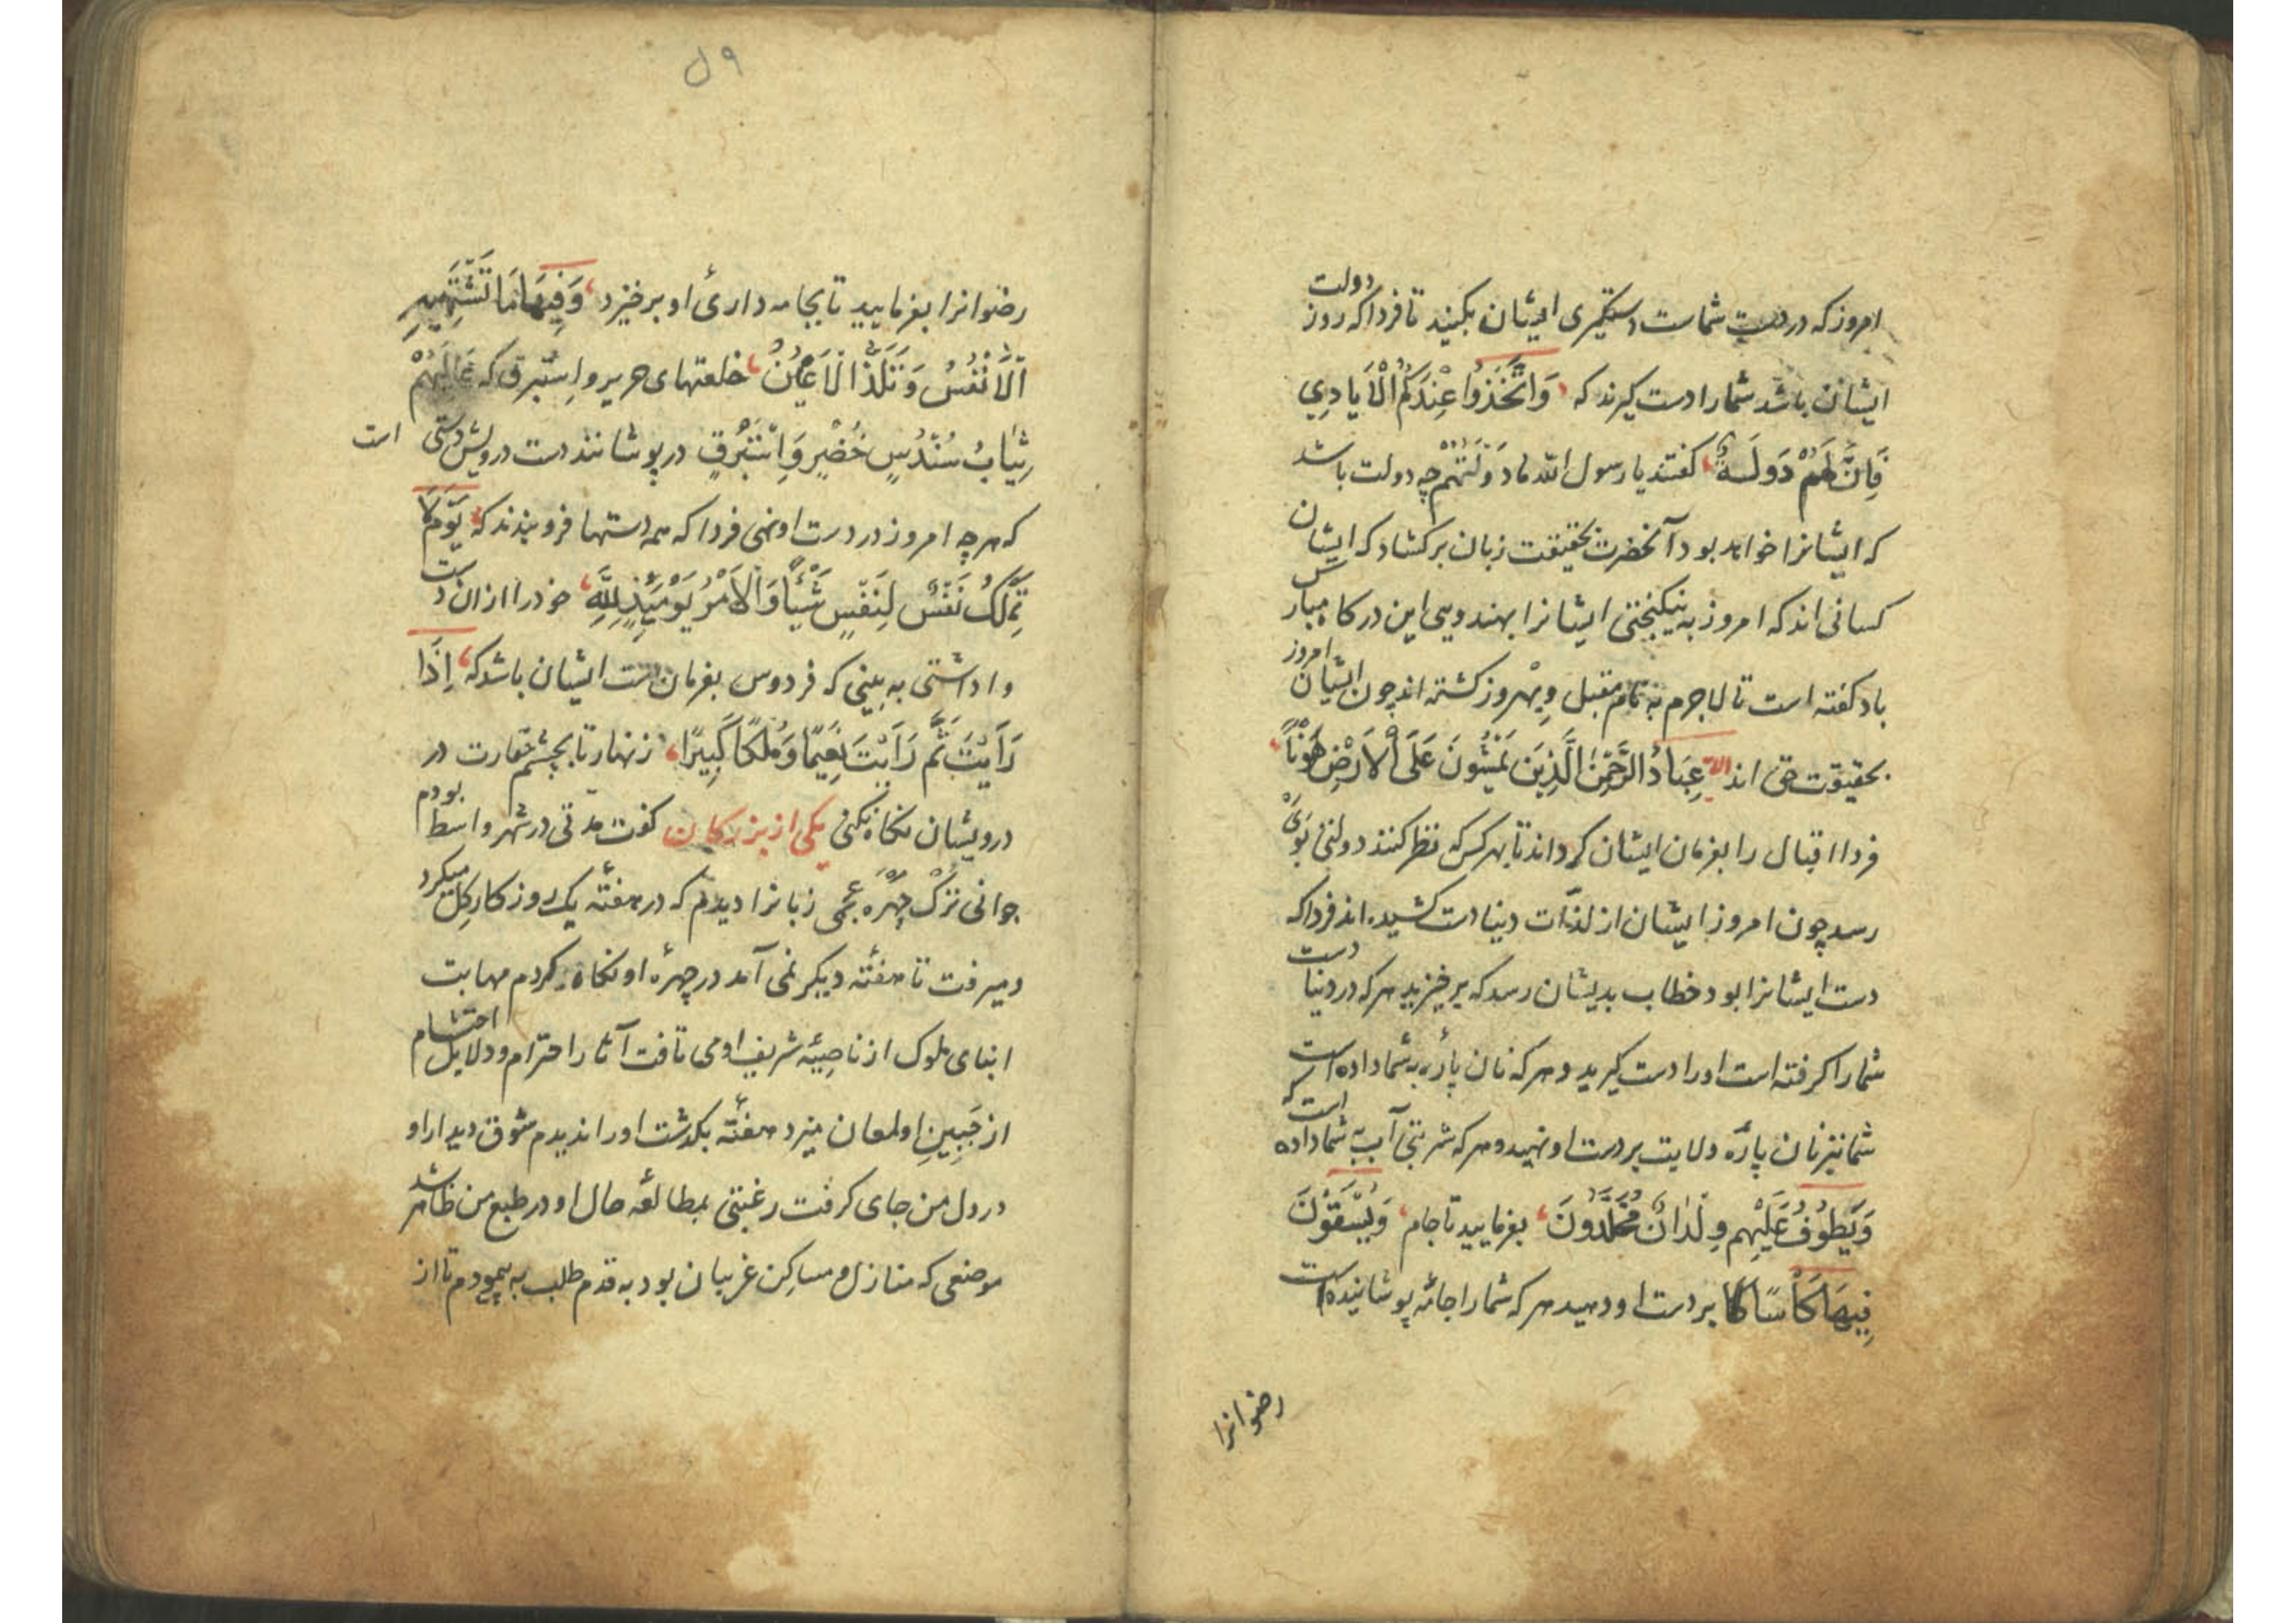 امروز که در دست شماست دستکیری ایشان بکنید تا فردا که روز دولت
ایشان باشد شما را دست کیرند که وَاتَّخَذُوا عِنْدَكُمُ الْاَيَادِي
فَاِنَّ لَهُمْ دَولَةً کفتند یا رسول الله ما دَوْلَتُهُمْ چه دولت باشد
که ایشانرا خواهد بود آنحضرت بحقیقت زبان برکشاد که ایشان
کسانی اند که امروز به نیکبختی ایشانرا بهندویی این درکاه مبارس
باد کفته است تا لاجرم به تمام مقبل و بهروز کشته اند چون ایشان امروز
بحقیقت حق اند عِبَادُ الرَّحْمٰنِ الَّذِينَ يَمْشُونَ عَلَى الْاَرْضِ هَوْنًا
فردا اقبال را بفرمان ایشان کرداند تا بهر کس که نظر کنند دولتی بَوَیْ
رسد چون امروز ایشان از لذّات دینا دست کشیده اند فردا که
دست ایشانرا بود خطاب بدیشان رسد که برخیزید هرکه در دنیا دست
شما را کرفته است او را دست کیرید و هرکه نان پارۀ به شما داده است
شما نیز نان پارۀ ولایت بر دست او نهید و هرکه شربتی آب به شما داده است که
وَيَطُوفُ عَلَيْهِم وِلْدَانٌ مُخَلَّدُونَ بفرمایید تا جام وَيُسْقَوْنَ
فِيهَا كَأْسًا كا بر دست او دهید هرکه شما را جامۀ پوشانیده است
رضوانرا
ل۹
رضوانرا بفرمایید تا بجامه داریٔ او برخیزد وَفِيهَا مَا تَشْتَهِيهِ
الْاَنْفُسُ وَتَلَذُّ الْاَعْيُنُ خلعتهای حریر و اِستبرق که عَالِيَهُمْ
ثِيَابُ سُنْدُسٍ خُضْرٍ وَاِسْتَبْرَقٍ در پوشانند دست درویش دستی است
که هرچه امروز در دست او نهی فردا که همه دستها فرو بندند که يَوْمَ لَا
تَمْلِكُ نَفْسٌ لِنَفْسٍ شَيْئًا وَالْاَمْرُ يَوْمَئِذٍ لِلَّهِ خود را از ان دست
واداشتی به بینی که فردوس بفرمان دست ایشان باشد که اِذَا
رَاَيْتَ ثَمَّ رَاَيْتَ نَعِيمًا وَمُلْكًا كَبِيرًا زنهار تا بچشم حقارت در
درویشان نکاه نکنی یکی از بزرکان کفت مدتی در شهر واسط بودم
جوانی تُرک چِهْرَه عجمی زبانرا دیدم که در هفتۀ یک روز کار کِل میکرد
و میرفت تا هفتۀ دیکر نمی آمد در چهرۀ او نکاه کردم مهابت
ابنای ملوک از ناصِیۀ شریف او می تافت آثار احترام و دلایل احتشام
از جَبِینِ او لمعان میزد هفتۀ بکذشت او را ندیدم شوق دیدار او
در دل من جای کرفت رغبتی بمطالعۀ حال او در طبع من ظاهر شد
موضعی که منازل و مساکِن غریبان بود به قدم طلب به پیمودم تا از